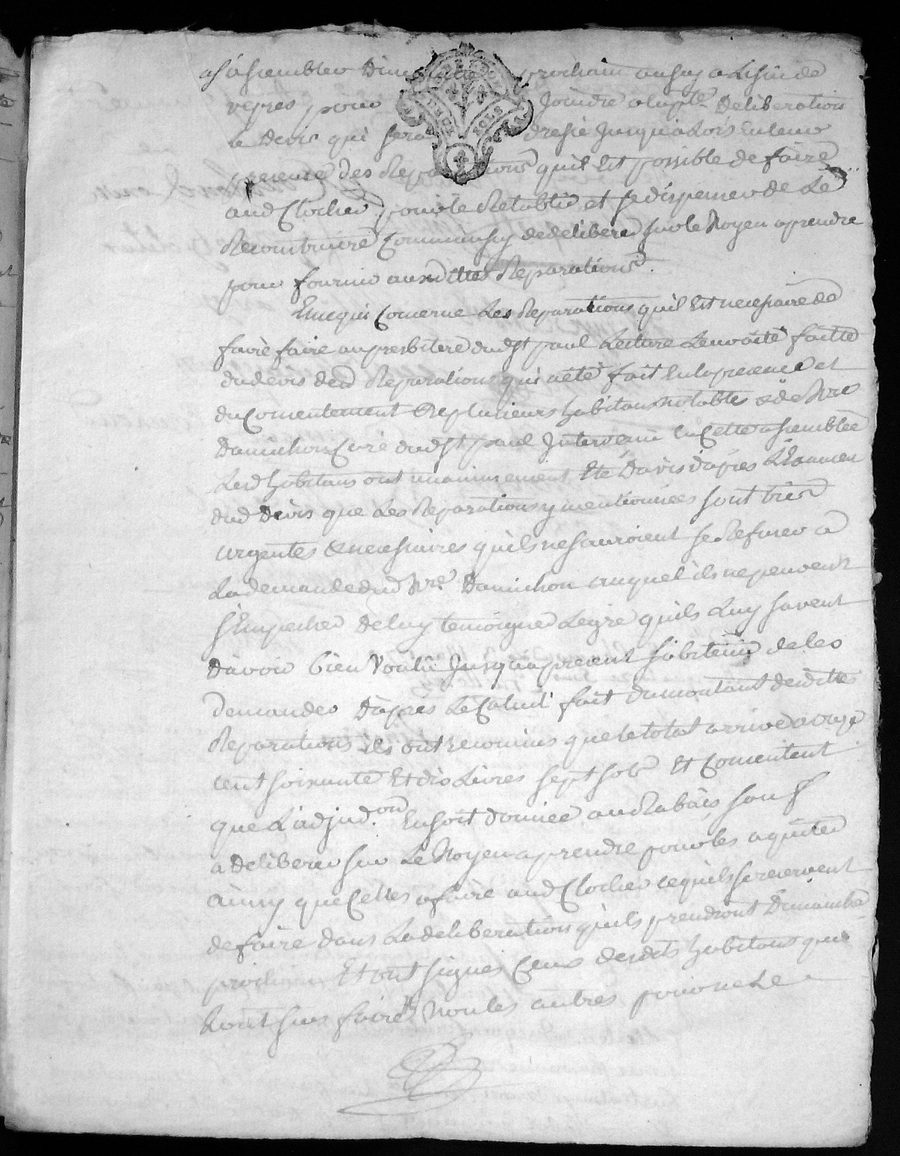 assembler Dimanche prochain aussy a L'issue de
vepres pour Joindre a la pte Deliberation
le Devis qui sera dressé Jusqu'alors En leur
presence des Reparations qu'il Est possible de faire
aud Clocher pour le Retablir et se dispenser de Le
Reconstruire Commaussy de deliberer sur le Moyen a prendre
pour fournir auxdittes Reparations.
Ence qui Concerne Les Reparations qu'il Est necessaire de
faire faire au presbitere dud st paul Lecture Leur a eté faitte
du devis desd Reparations qui a eté fait En la presence et
du Consentement de plusieurs habitans notables & de Mre
Danichon Curé dud st paul Intervenu En Cette assemblée
Lesd habitans ont unanimement Eté D'avis d'apres L'Examen
dud Devis que Les Reparations y mentionnées sont bien
urgentes & necessaires qu'ils ne sauroient se Refuser a
La demande dud Mre Danichon auquel ils ne peuvent
s'Empecher De luy temoigner Le gré qu'ils Luy savent
D'avoir bien Voulu Jusqu'a present s'abstenir de les
demander D'apres Le Calcul fait du montant desdittes
Reparations ils ont Reconnus que le total arrive a onze
cent soixante Et dix Livres sept sols Et Consentent
que L'adjudon En soit donnée au Rabais sauf
a Deliberer sur Le Moyen a prendre pour les aquiter
ainsy que Celles a faire aud Clocher ce qu'ils se reservent
de faire Dans La deliberation qu'ils prendront Dimanche
prochain Et ont signés Ceux desdits habitans qui
L'ont sus faire Non les autres pour ne Le